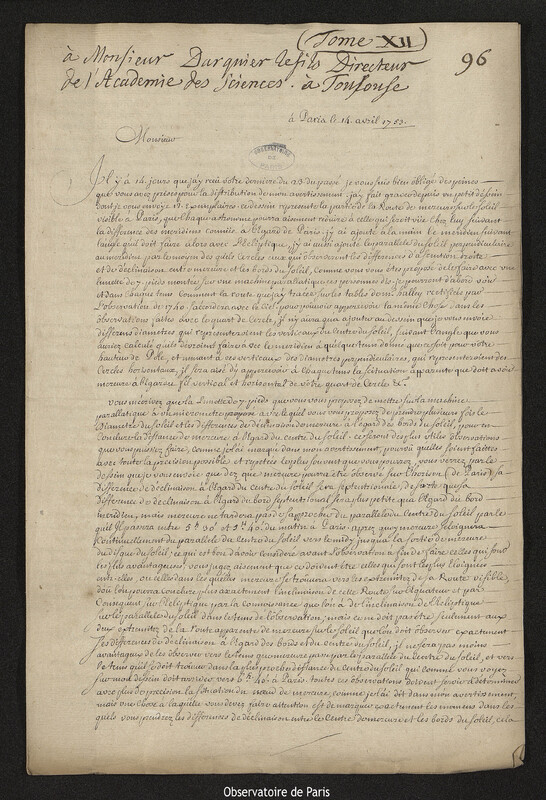 Tome XII
96
à Monsieur Darquier le fils Directeur
de l'Academie des Sciences. à Toulouse
à Paris le 14. avril 1753.
Monsieur
Il y à 14. jours que j'ay reçu votre derniere du 23 du passé. je vous suis bien obligé des peines
que vous avez prises pour la distribution de mon avertissement. j'ay fait graver depuis un petit dessein
dont je vous envoye 17. exemplaires. ce dessein represente la partie de la Route de mercure sur le soleil
visible à Paris, que chaque astronome pourra aisement reduire à celle qui se doit voir chez luy suivant
la difference des meridiens connue, à l'egard de Paris. j'y ai ajouté à la main le meridien suivant
l'angle qu'il doit faire alors avec l'Ecliptique, j'y ai aussi ajouté les paralleles du soleil perpendiculaires
au meridien, par le moyen des quels Ceux qui observeront les differences d'ascension droite
et de declinaison entre mercure et les bords du soleil, comme vous vous êtes proposé de le faire avec une
lunette de 7. pieds montée sur une machine parallatique
l'observation de 1740 s'accordera avec le Ciel. pour pouvoir appercevoir la même Chose dans les
observations faites avec le quart de Cercle, il n'y aura que ajouter au dessein que je vous envoie
differens diametres qui representeront les verticaux du Centre du soleil, suivant l'angle que vous
aurez calculé qu'ils devront faire avec le meridien à quelque tems donné que ce soit pour votre
hauteur de Pole, et menant à ces verticaux des diametres perpendiculaires, qui representeront des
Cercles horisontaux, il sera aisé d'y appercevoir à Chaque tems la situation apparente que doit avoir
mercure à l'egard du fil vertical et horisontal de votre quart de Cercle &c.
vous m'ecrivez que la Lunette de 7 pieds que vous vous proposez de mettre sur la machine
parallatique à un micrometre avec lequel vous vous proposez de prendre plusieurs fois le
Diametre du soleil et les differences de declinaison de mercure à l'egard des bords du soleil, pour en
Conclure la distance de mercure à l'egard du centre du soleil. ce seront des plus utiles observations
que vous puissiez faire, comme je l'ai marqué dans mon avertissement, pourvu qu'elles soient faites
avec toute la precision possible et repetées le plus souvent que vous pourrez. vous verrez par le
dessein que je vous envoie que dez que mercure pourra être observé sur l'horison (de Paris) sa
difference de declinaison à l'egard du centre du soleil sera septentrionale, de sorte que sa
difference de declinaison à l'egard du bord septentrional sera plus petite qu'à l'egard du bord
meridien, mais mercure ne tardera pas à s'approcher du parallele du Centre du soleil par le
quel il passera entre 5h 30' et 5h 40' du matin à Paris. aprez quoy mercure s'eloignera
Continuellement du parallele du Centre du soleil vers le midy jusqu'à la sortie de mercure
du disque du soleil; ce qui est bon d'avoir consideré avant l'observation afin de faire celles qui sont
les plus avantageuses. vous jugez aisement que ce doivent être celles qui sont les plus éloignées
entr'elles, ou celles dans les quelles mercure se trouvera vers les extremitez de sa Route visible,
d'où l'on pourra conclure plus exactement l'inclinaison de cette Route sur l'equateur et par
Consequent sur l'Ecliptique par la connoissance que l'on à de l'inclinaison de l'Ecliptique
sur les paralleles du soleil dans le tems de l'observation; mais ce ne doit pas être seulement aux
deux extremitez de la Route apparente de mercure sur le soleil que l'on doit observer exactement
les differences de declinaison à l'egard des bords et du centre du soleil, il ne sera pas moins
avantageux de les observer vers le tems que mercure passera par le parallele du Centre du soleil, et vers
le tems qu'il doit se trouver dans la plus proche distance du Centre du soleil qui comme vous voyez
sur mon dessein doit arriver vers 6h. 40'. à Paris. toutes ces observations doivent servir à determiner
avec plus de precision la situation du noeud de mercure, comme je l'ai dit dans mon avertissement,
mais une chose à laquelle vous devez faire attention est de marquer exactement les momens dans les
quels vous prendrez les differences de declinaison entre le Centre de mercure et les bords du soleil, cela
Observatoire de Paris